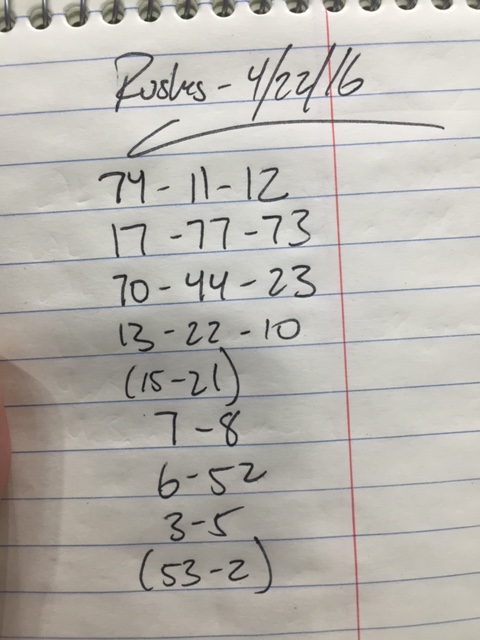 Rushes - 4/22/16
74 - 11 - 12
17 - 77 - 73
70 - 44 - 23
13 - 22 - 10
(15 - 21)
7 - 8
6 - 52
3 - 5
(53 - 2)